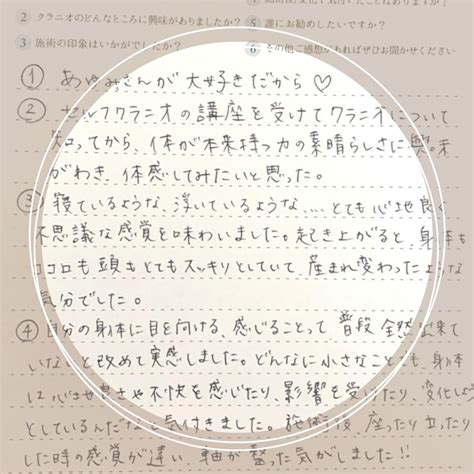 2 クラニオのどんなところに興味がありましたか?
5 誰にお勧めしたいですか?
3 施術の印象はいかがでしたか?
6 その他ご感想があればぜひお聞かせください
① あゆみさんが大好きだから♡
② セルフクラニオの講座を受けてクラニオについて
知ってから、体が本来持つ力の素晴らしさに興味
がわき、体感してみたいと思った。
③ 寝ているような、浮いているような、、、とても心地良く
不思議な感覚を味わいました。起き上がると、身体も
ココロも頭もとてもスッキリとしていて、産まれ変わったような
気分でした。
④ 自分の身体に目を向ける、感じることって普段全然出来て
いないと改めて実感しました。どんなに小さなことでも、身体
は心地良さや不快を感じたり、影響を受けたり、変化しよう
としているんだなと気付きました。施術後、座ったり立ったり
した時の感覚が違い、軸が整った気がしました!!